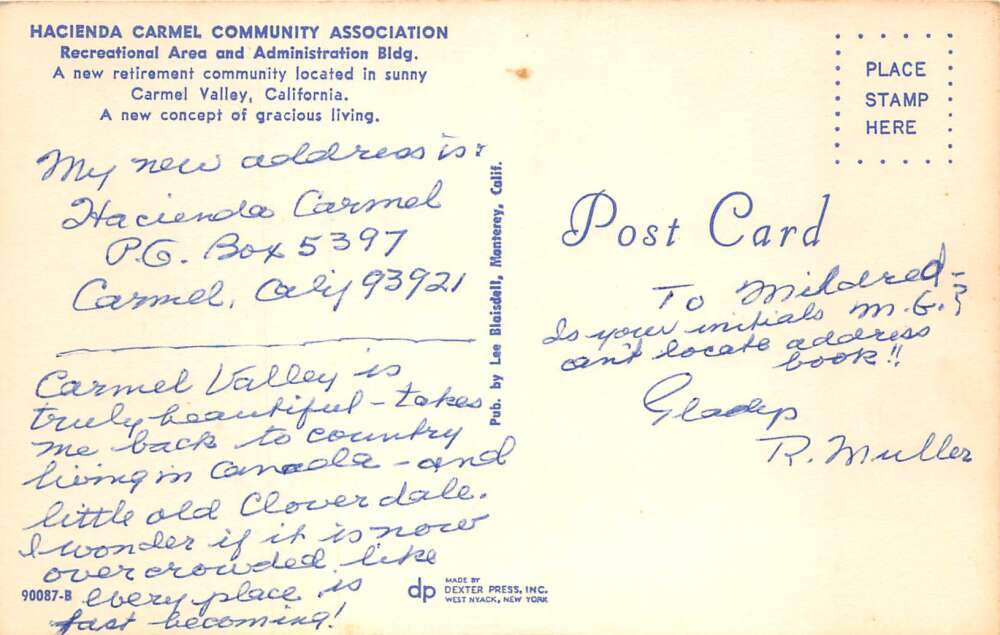 HACIENDA CARMEL COMMUNITY ASSOCIATION
Recreational Area and Administration Bldg.
A new retirement community located in sunny
Carmel Valley, California.
A new concept of gracious living.
My new address is:
Hacienda Carmel
P.O. Box 5397
Carmel, Calif 93921
Carmel Valley is
truly beautiful - takes
me back to country
living in Canada - and
little old Cloverdale.
I wonder if it is now
overcrowded like
every place is
fast becoming!
90087-B
Pub. by Lee Blaisdell, Monterey, Calif.
dp
MADE BY
DEXTER PRESS, INC.
WEST NYACK, NEW YORK
PLACE
STAMP
HERE
Post Card
To Mildred -
Is your initials M.G.?
can't locate address
book!!
Gladys
R. Muller